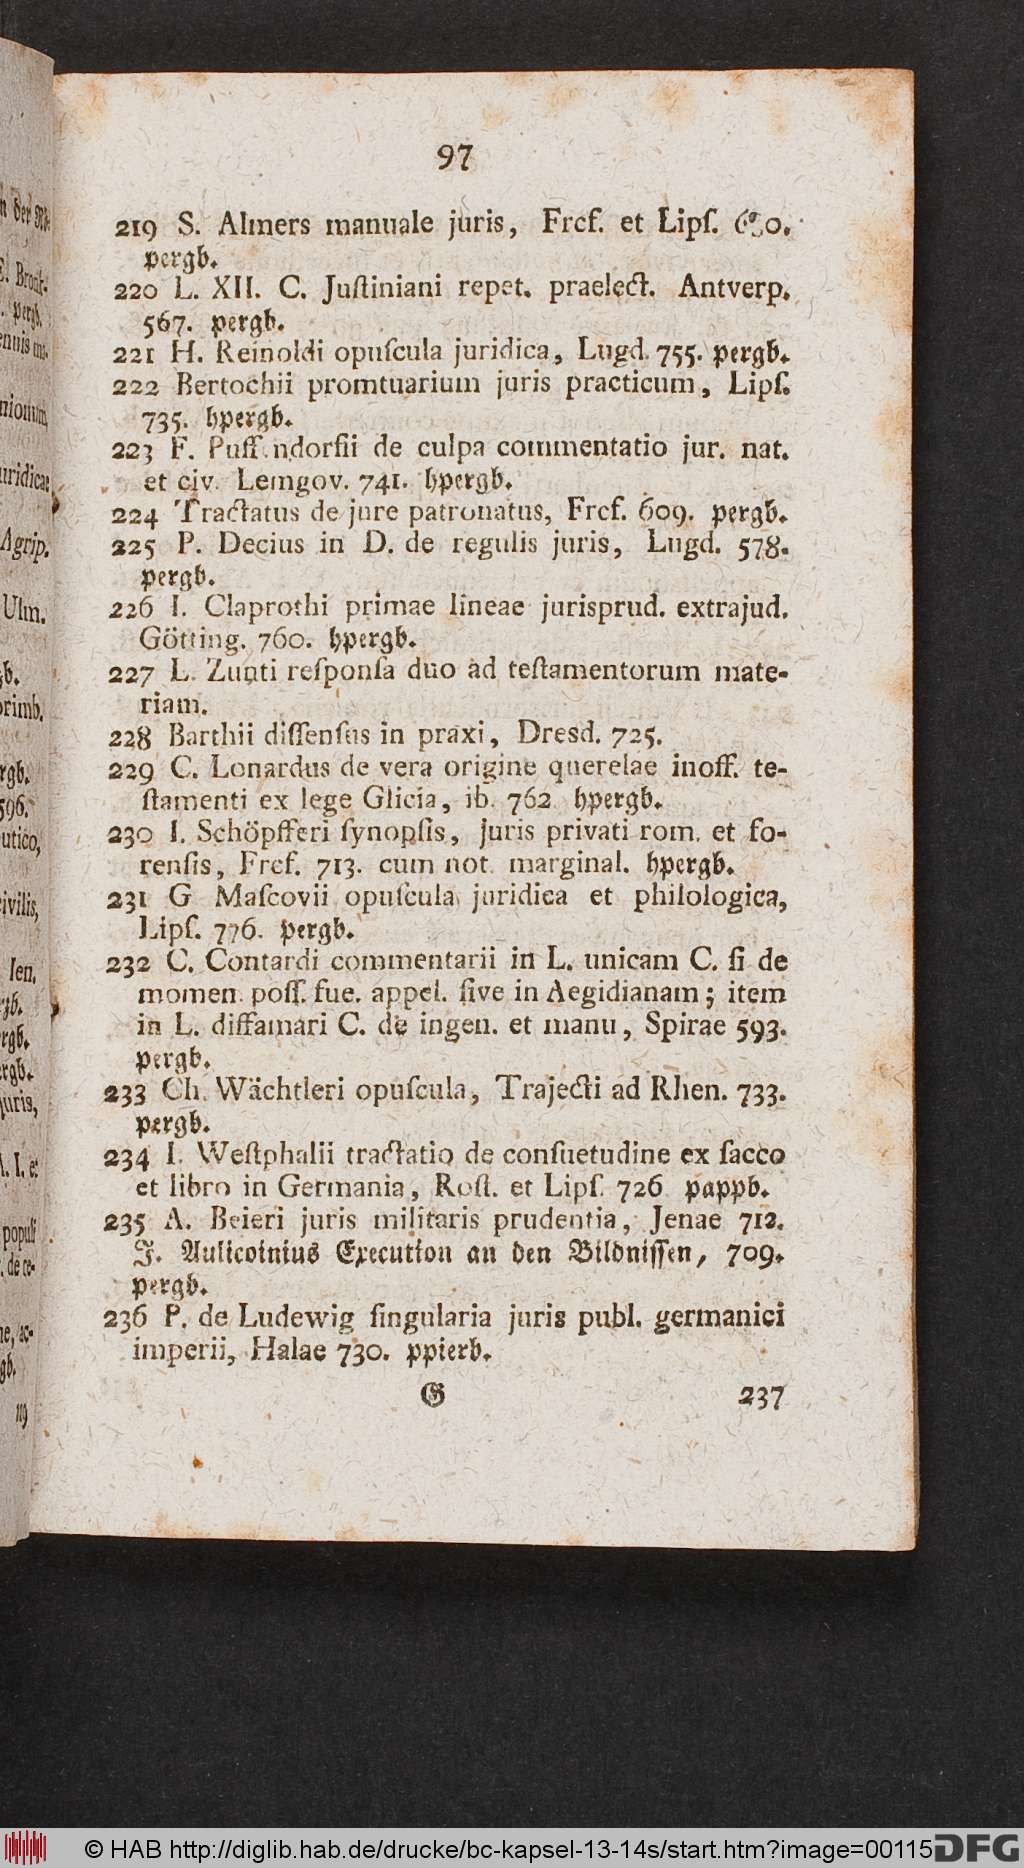 97
219 S. Almers manuale juris, Frcf. et Lipſ.
pergb.
220 L. XII. C. Juſtiniani repet. praelect. Antverp.
567. pergb.
221 H. Reinoldi opuſcula juridica, Lugd. 755. pergb.
222 Bertochii promtuarium juris practicum, Lipſ.
735. hpergb.
223 F. Puff.ndorfii de culpa commentatio jur. nat.
et civ. Lemgov. 741. hpergb.
224 Tractatus de jure patronatus, Frcf. 609. pergb.
225 P. Decius in D. de regulis juris, Lugd. 578.
pergb.
226 I. Claprothi primae lineae jurisprud. extrajud.
Götting. 760. hpergb.
227 L. Zunti reſponſa duo ad teſtamentorum mate-
riam.
228 Barthii diſſenſus in praxi, Dresd. 725.
229 C. Lonardus de vera origine querelae inoff. te-
ſtamenti ex lege Glicia, ib. 762 hpergb.
230 I. Schöpfferi ſynopſis, juris privati rom. et fo-
renſis, Frcf. 713. cum not. marginal. hpergb.
231 G Maſcovii opuſcula juridica et philologica,
Lipſ. 776. pergb.
232 C. Contardi commentarii in L. unicam C. ſi de
momen. poſſ. fue. appel. ſive in Aegidianam; item
in L. diffamari C. de ingen. et manu, Spirae 593.
pergb.
233 Ch. Wächtleri opuſcula, Trajecti ad Rhen. 733.
pergb.
234 I. Weſtphalii tractatio de conſuetudine ex ſacco
et libro in Germania, Roſt. et Lipſ. 726 pappb.
235 A. Beieri juris militaris prudentia, Jenae 712.
J. Aulicoinius Execution an den Bildniſſen, 709.
pergb.
236 P. de Ludewig ſingularia juris publ. germanici
imperii, Halae 730. ppierb.
G 237
© HAB http://diglib.hab.de/drucke/bc-kapsel-13-14s/start.htm?image=00115
DFG